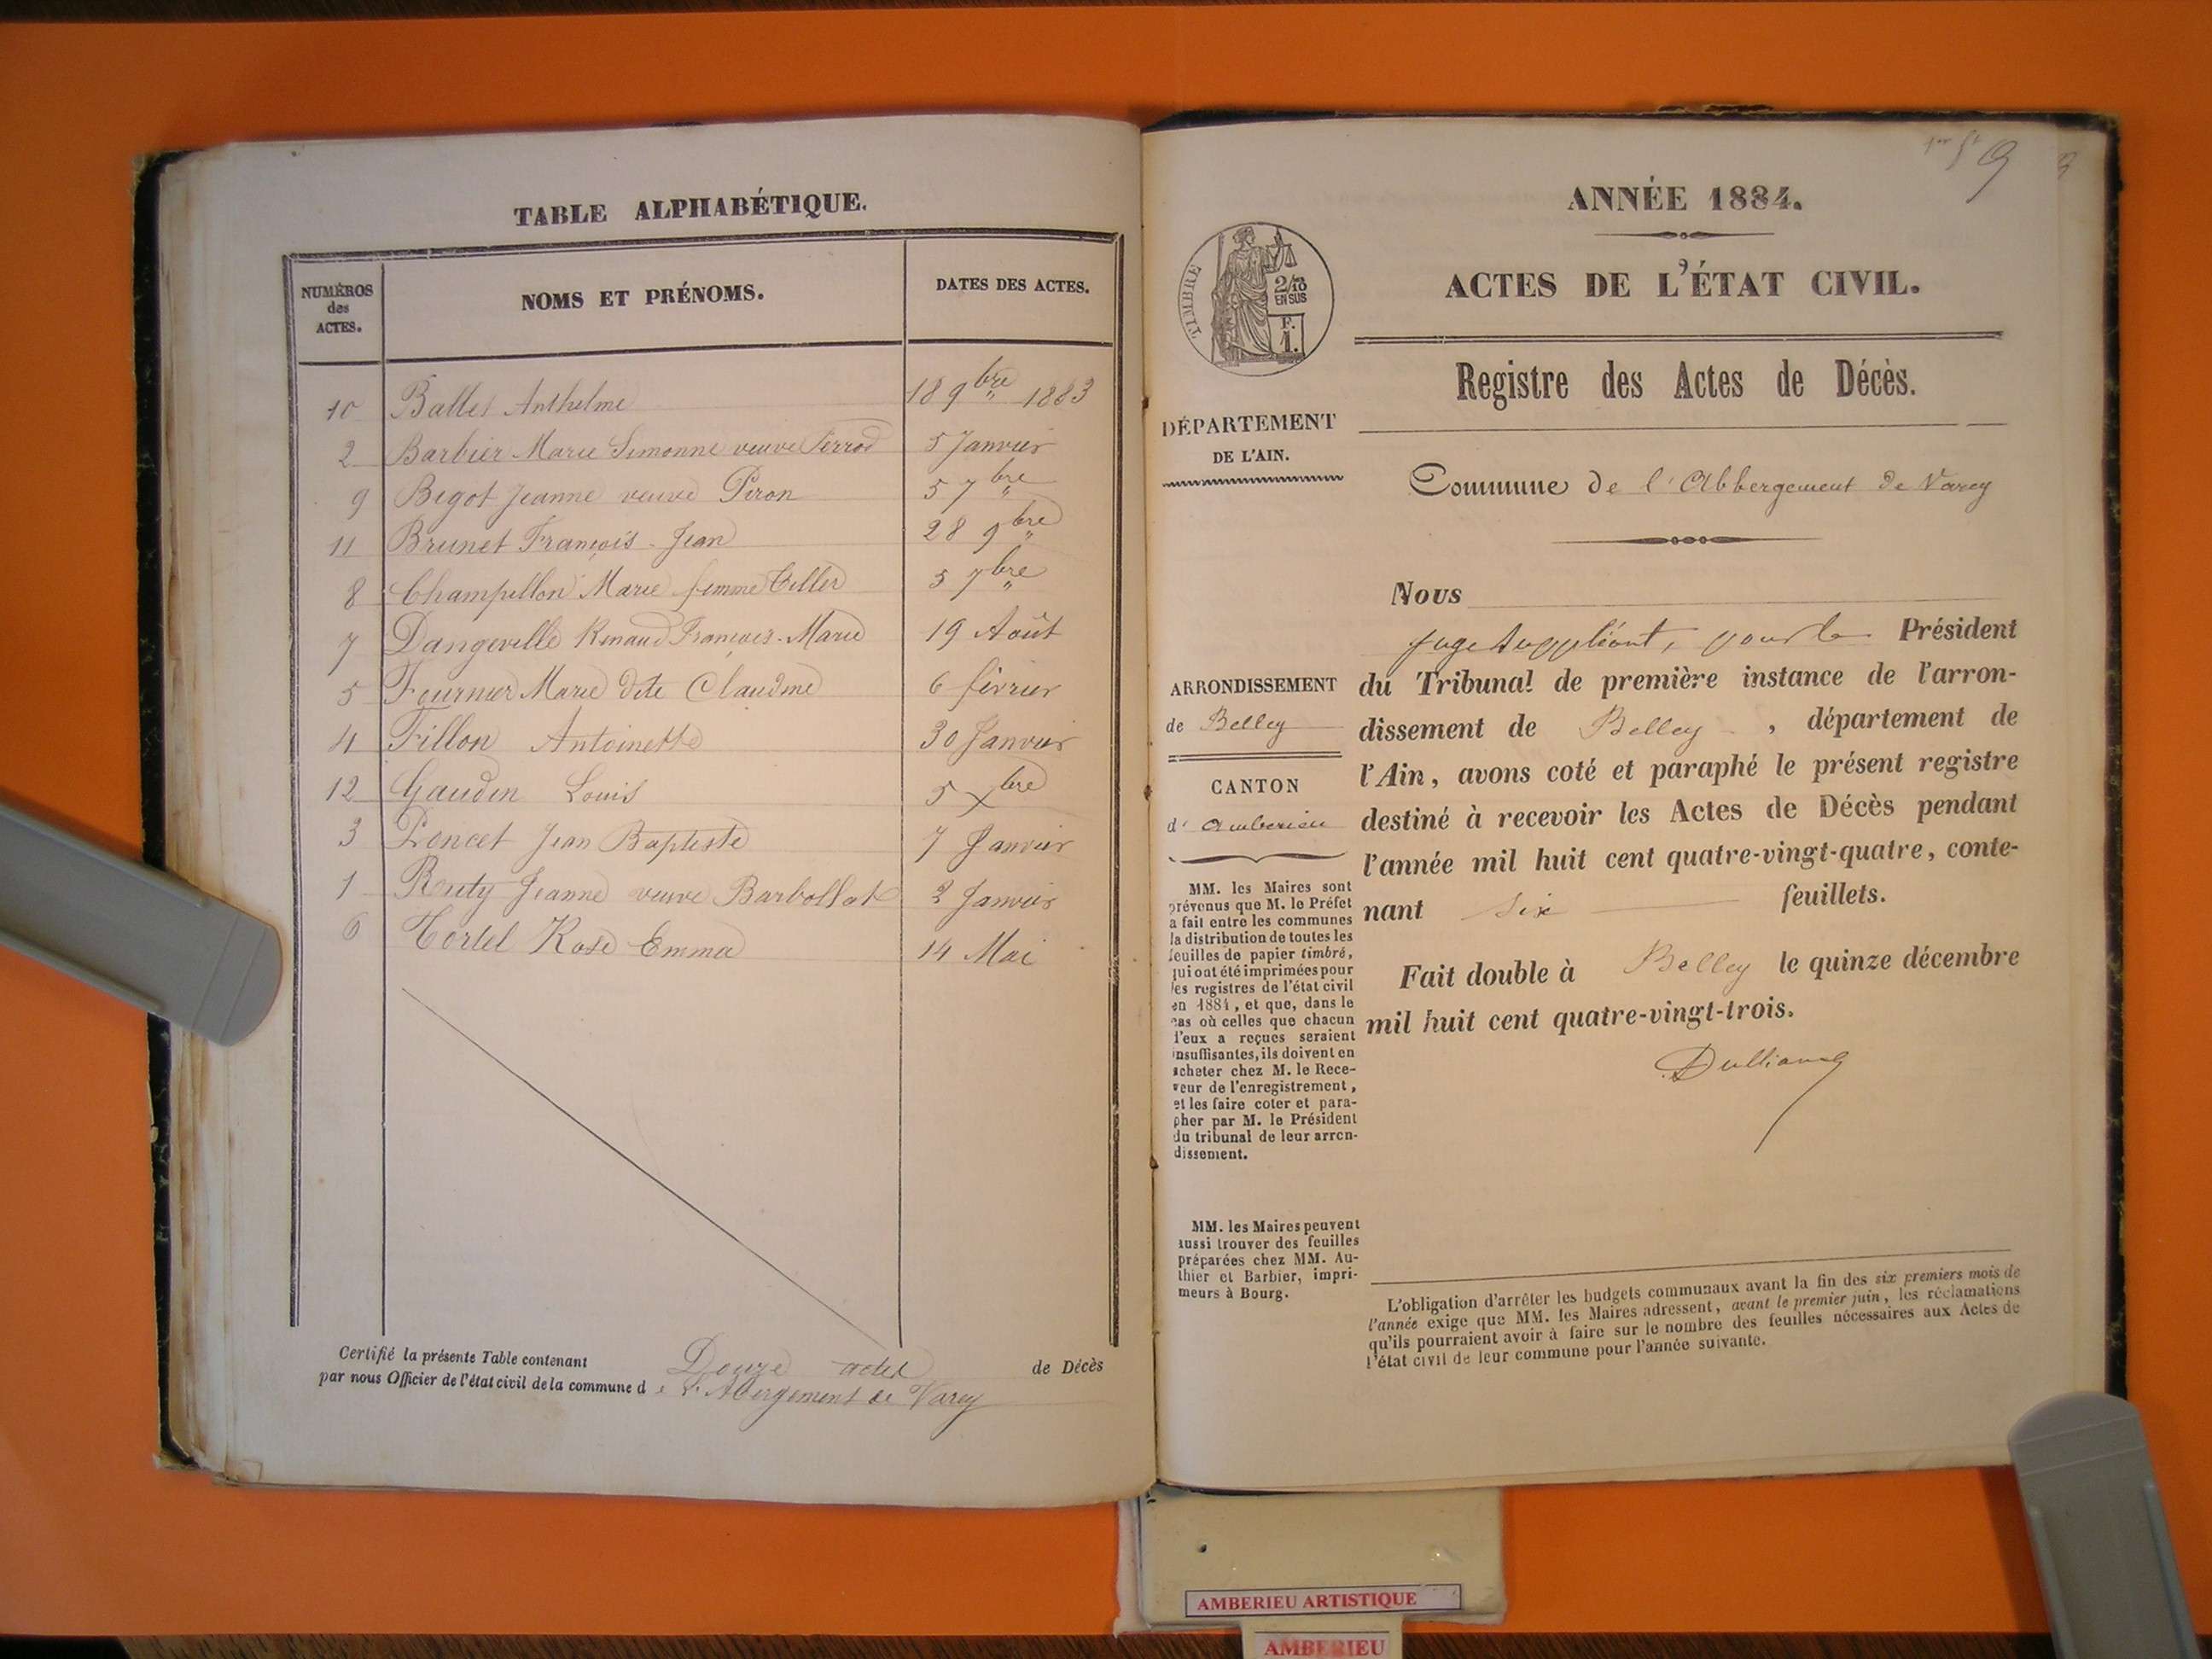 TABLE ALPHABÉTIQUE.
NUMÉROS
des
ACTES.
NOMS ET PRÉNOMS.
DATES DES ACTES.
10 Ballet Anthelme 18 9bre 1883
2 Barbier Marie Simonne veuve Ferrod 5 Janvier
9 Begot Jeanne veuve Piron 5 7bre
11 Brunet François-Jean 28 9bre
8 Champillon Marie femme Tiller 5 7bre
7 Dangeville Renaud François-Marie 19 Août
5 Fournier Marie dite Claudine 6 février
4 Fillon Antoinette 30 Janvier
12 Gaudin Louis 5 Xbre
3 Poncet Jean Baptiste 7 Janvier
1 Routy Jeanne veuve Barbollat 2 Janvier
6 Tortel Rose Emma 14 Mai
Certifié la présente Table contenant Douze actes de Décès
par nous Officier de l'état civil de la commune de l'Abergement de Varey
9
ANNÉE 1884.
ACTES DE L'ÉTAT CIVIL.
Registre des Actes de Décès.
TIMBRE
2/10
EN SUS
F.
1.
DÉPARTEMENT
DE L'AIN.
Commune de l'Abbergement de Varey
Nous
juge Suppléant, pour le Président
du Tribunal de première instance de l'arron-
dissement de Belley, département de
l'Ain, avons coté et paraphé le présent registre
destiné à recevoir les Actes de Décès pendant
l'année mil huit cent quatre-vingt-quatre, conte-
nant Six feuillets.
Fait double à Belley le quinze décembre
mil huit cent quatre-vingt-trois.
ARRONDISSEMENT
de Belley
CANTON
d'Amberieu
MM. les Maires sont
prévenus que M. le Préfet
a fait entre les communes
la distribution de toutes les
feuilles de papier timbré,
qui ont été imprimées pour
les registres de l'état civil
en 1884, et que, dans le
cas où celles que chacun
d'eux a reçues seraient
insuffisantes, ils doivent en
acheter chez M. le Rece-
veur de l'enregistrement,
et les faire coter et para-
pher par M. le Président
du tribunal de leur arron-
dissement.
MM. les Maires peuvent
aussi trouver des feuilles
préparées chez MM. Au-
thier et Barbier, impri-
meurs à Bourg.
L'obligation d'arrêter les budgets communaux avant la fin des six premiers mois de
l'année exige que MM. les Maires adressent, avant le premier juin, les réclamations
qu'ils pourraient avoir à faire sur le nombre des feuilles nécessaires aux Actes de
l'état civil de leur commune pour l'année suivante.
AMBERIEU ARTISTIQUE
AMBERIEU